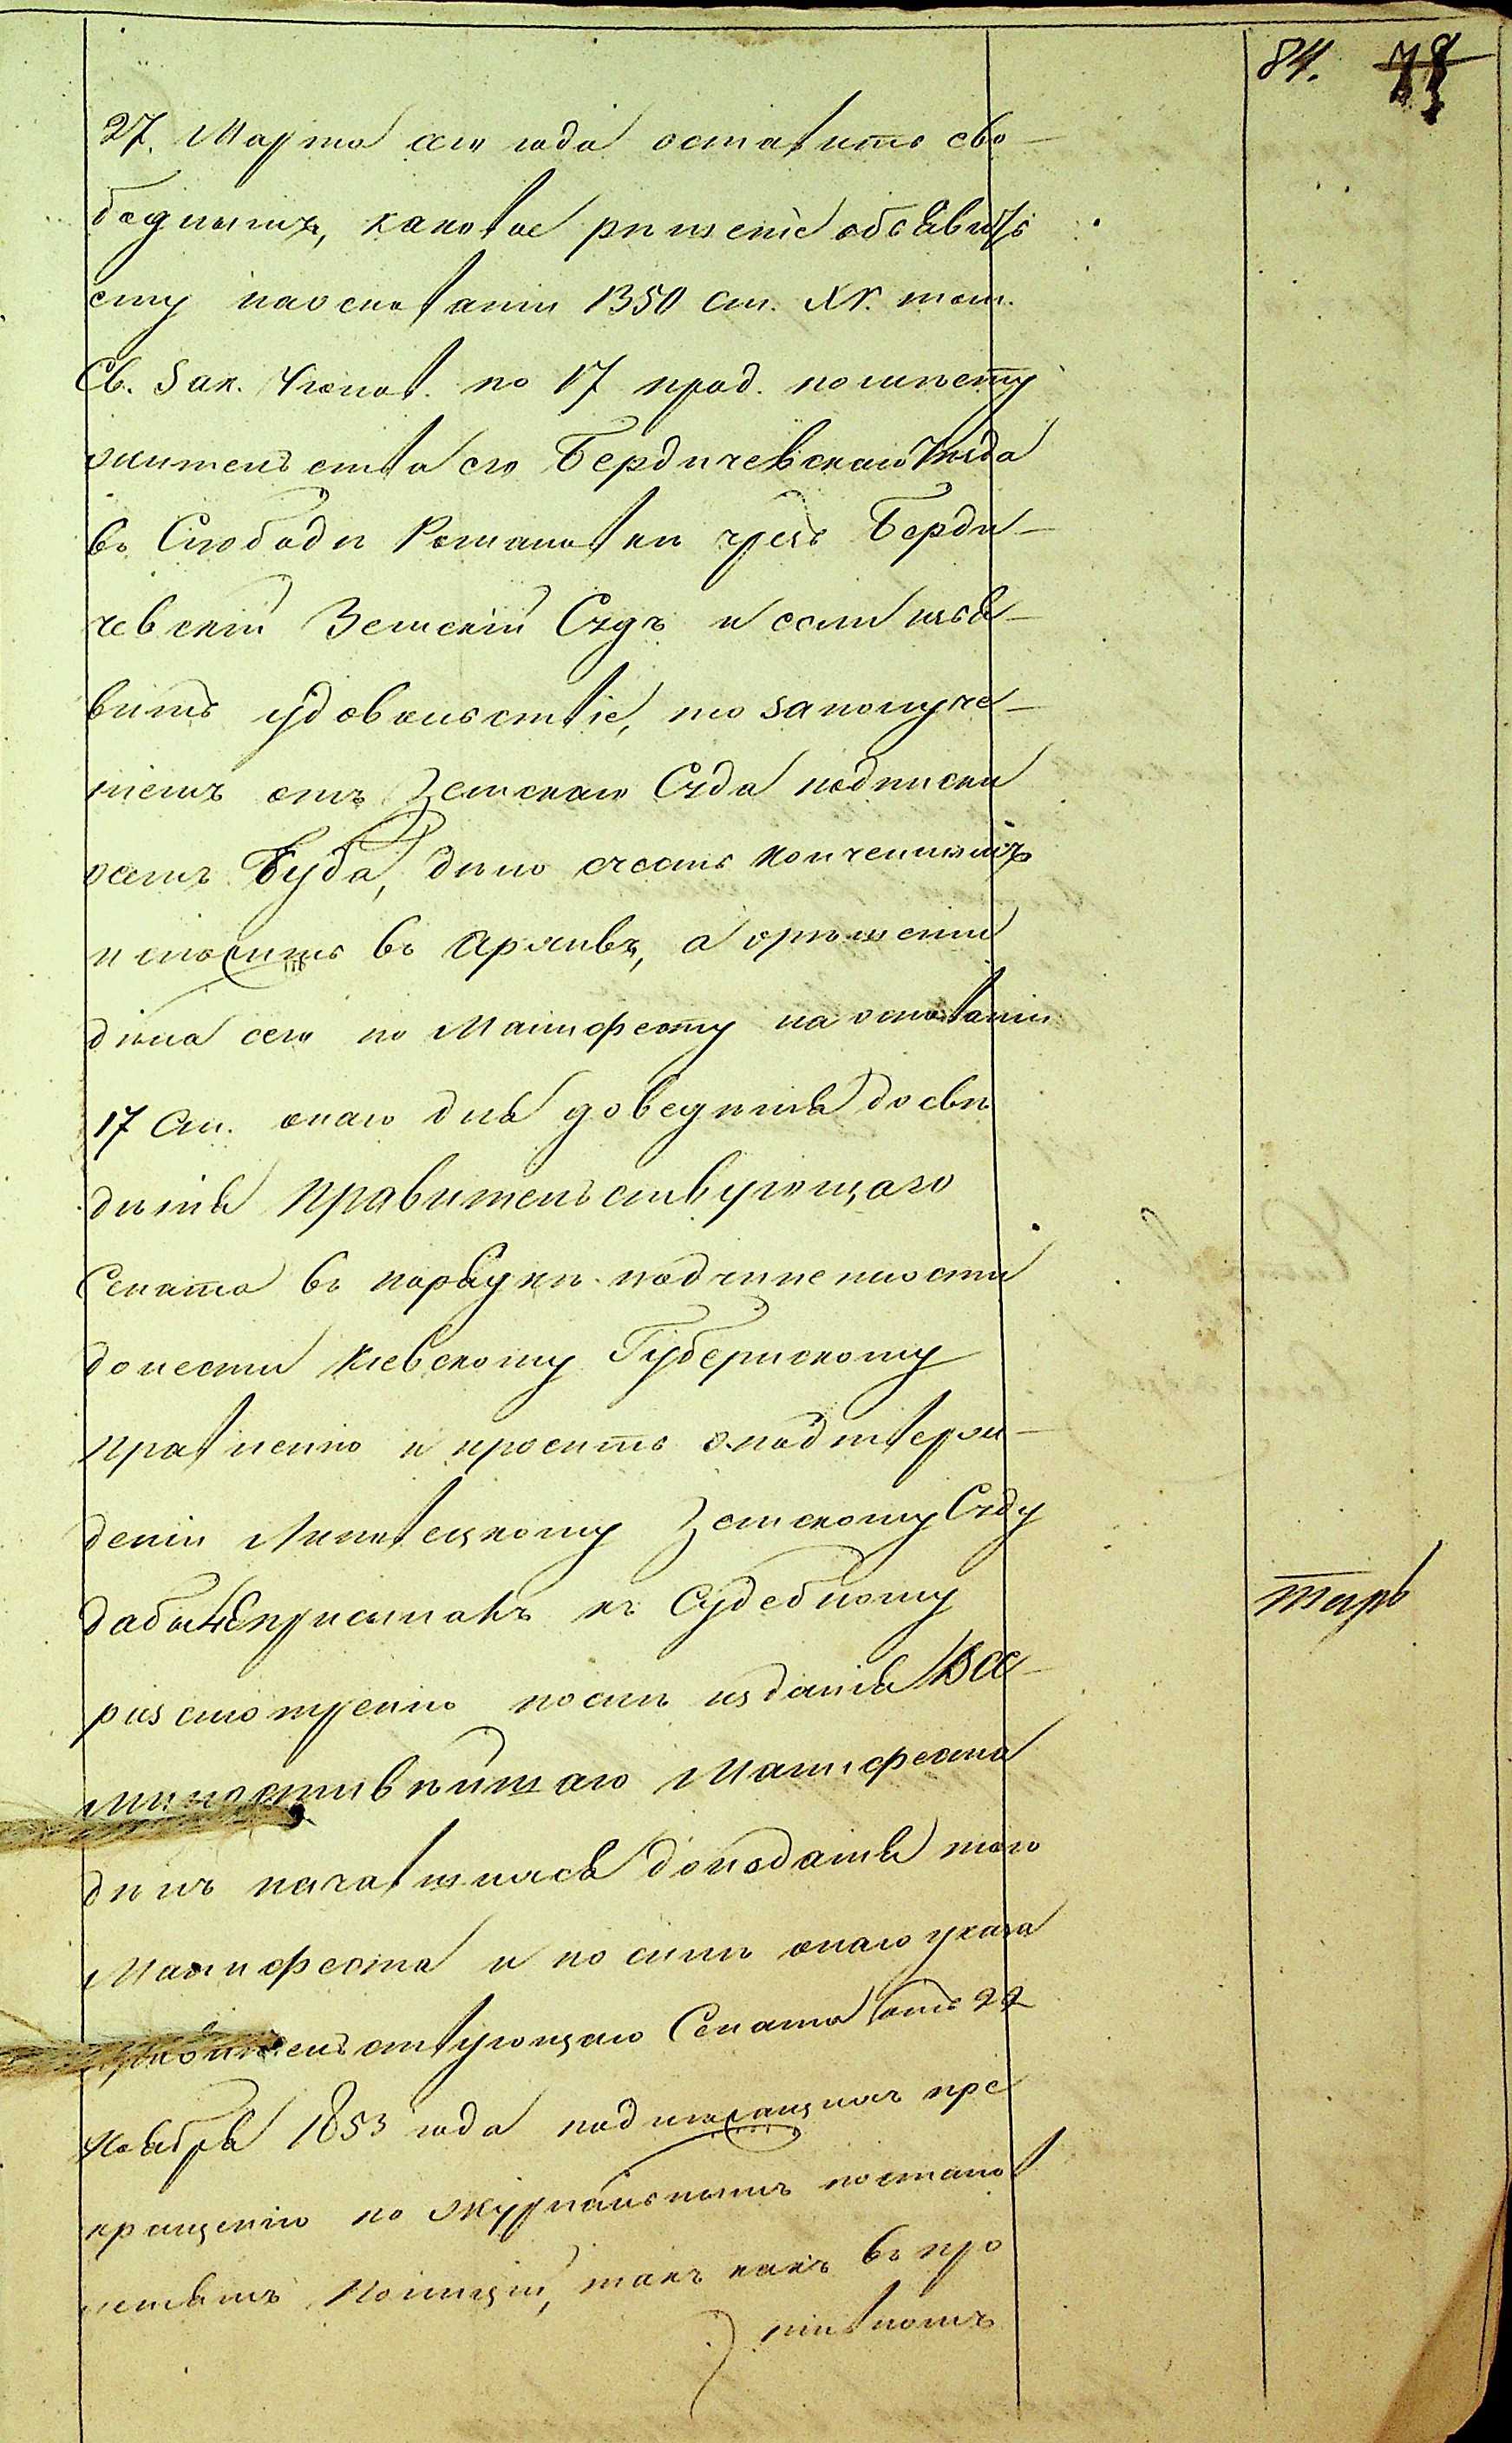 84. 78
27. Марта сего года оставить сво-
боднымъ, каковое рѣшеніе объявить
ему на основаніи 1350 ст. XV. том.
Св. Зак. Уголов. по 17 прод. по мѣсту
жительства его Бердичевскаго Уѣзда
въ Слободѣ Романовкѣ чрезъ Берди-
чевскій Земскій Судъ и если изъя-
витъ удовольствіе, то за получе-
ніемъ отъ Земскаго Суда подписки
о семъ Буда, дѣло счесть конченнымъ
и сложить въ Архивъ, а о рѣшеніи
дѣла сего по Манифесту на основаніи
17 ст. онаго для доведенія до свѣ
дѣнія Правительствующаго
Сената въ порядкѣ подчиненности
донести Кіевскому Губернскому
Правленію и просить о подтверж-
деніи Липовецкому Земскому Суду
дабы не присылалъ къ Судебному
разсмотренію послѣ изданія Все-
милостивѣйшаго Манифеста
дѣлъ начавшихся до изданія того
Манифеста и по силѣ онаго указа
Правительствующаго Сената отъ 22
Ноября 1853 года подлежащихъ пре
кращенію по журнальнымъ постанов
леніямъ Полиціи, такъ какъ въ про
тивномъ
тарь